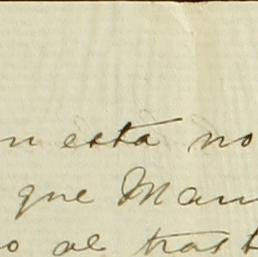 n esta no
que Man
o al trast